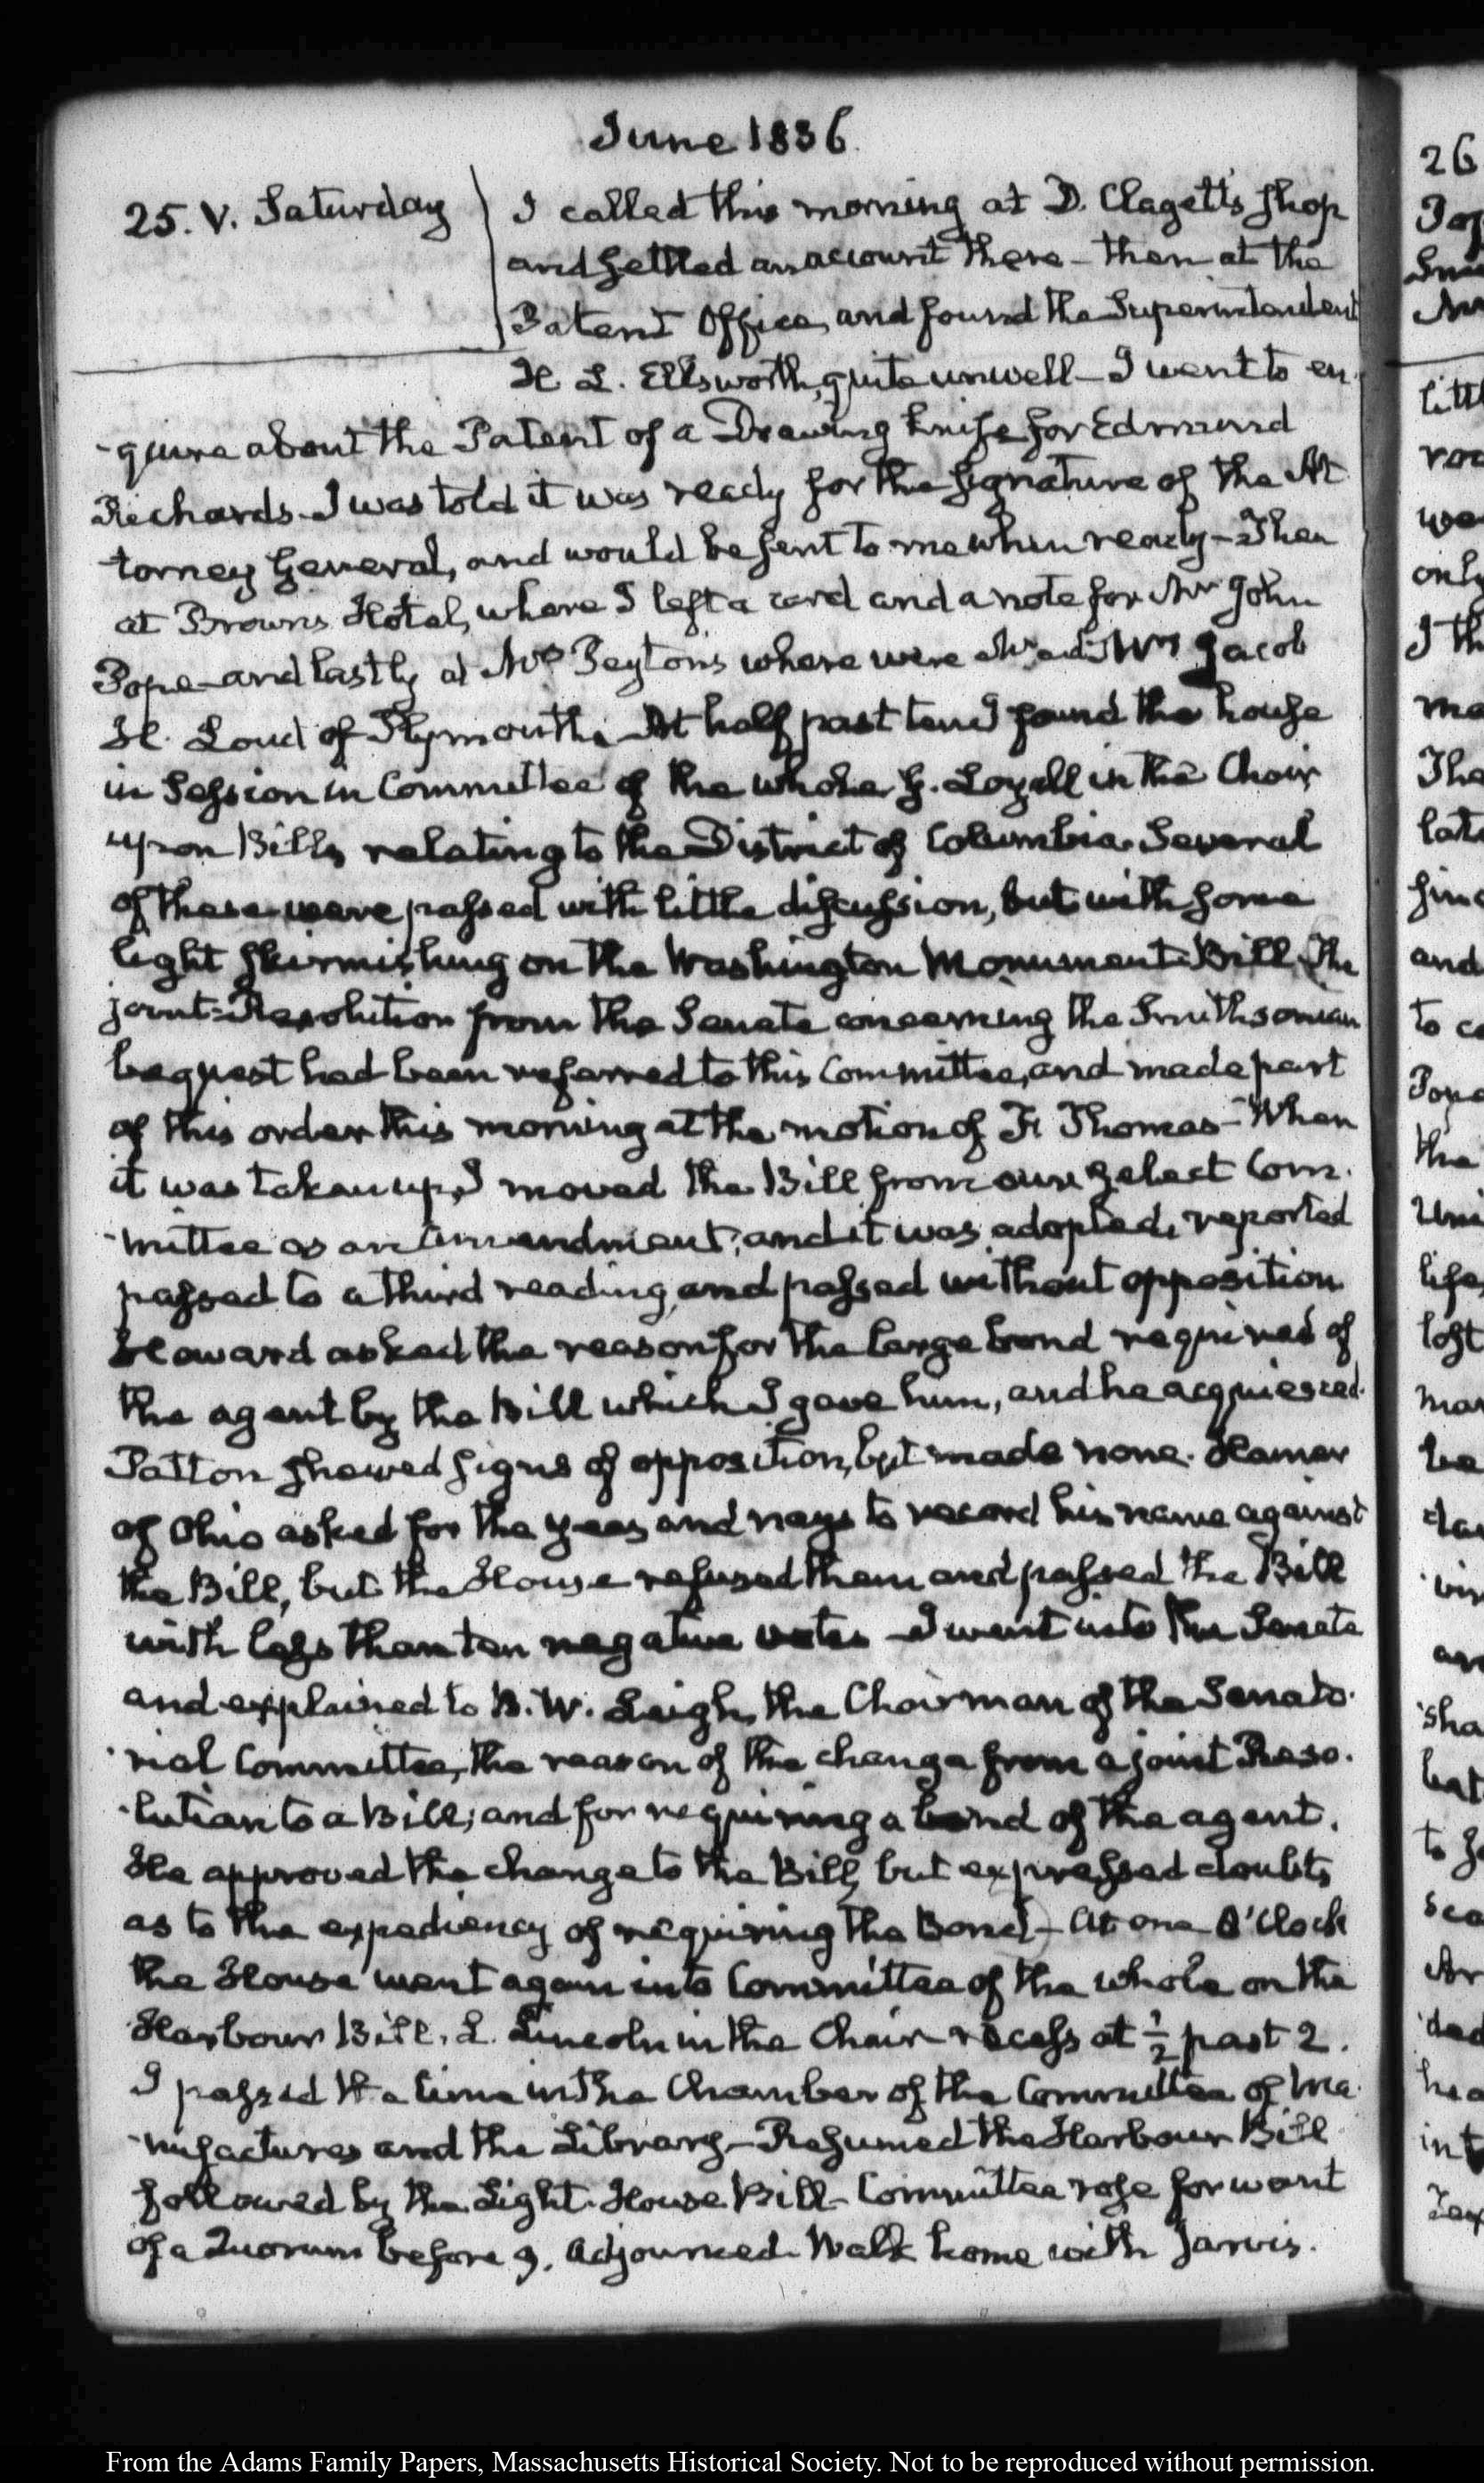 June 1836.
25. V. Saturday
I called this morning at D. Clagett's shop
and settled an account there - then at the
Patent Office, and found the Superintendent
H. L. Ellsworth, quite unwell - I went to en-
-quire about the Patent of a Drawing knife for Edmund
Richards. I was told it was ready for the signature of the At
torney General, and would be sent to me when ready - Then
at Browns Hotel, where I left a card and a note for Mr John
Pope - and lastly at Mrs Peyton's where were Mr and Mrs Jacob
H. Loud of Plymouth. At half past ten I found the house
in Session in Committee of the whole G. Loyall in the Chair
upon Bills relating to the District of Columbia. Several
of these were passed with little discussion, but with some
light skirmishing on the Washington Monument Bill. The
joint-Resolution from the Senate concerning the Smithsonian
bequest had been referred to this Committee, and made part
of this order this morning at the motion of F. Thomas - When
it was taken up, I moved the Bill from our select Com-
-mittee as an amendment, and it was adopted, reported
passed to a third reading, and passed without opposition
Howard asked the reason for the large bond required of
the agent by the Bill which I gave him, and he acquiesced.
Patton showed signs of opposition, but made none. Hamer
of Ohio asked for the yeas and nays to record his name against
the Bill, but the House refused them and passed the Bill
with less than ten negative votes - I went into the Senate
and explained to B. W. Leigh, the Chairman of the Senato-
-rial Committee, the reason of the change from a joint Reso-
-lution to a Bill; and for requiring a bond of the agent.
He approved the change to the Bill, but expressed doubts
as to the expediency of requiring the Bond - At one O'Clock
the House went again into Committee of the whole on the
Harbour Bill. L. Lincoln in the Chair - recess at ½ past 2.
I passed the time in the Chamber of the Committee of Ma-
-nufactures and the Library - Resumed the Harbour Bill
followed by the Light-House Bill - Committee rose for want
of a Quorum before 9. Adjourned. Walk home with Jarvis.
26
From the Adams Family Papers, Massachusetts Historical Society. Not to be reproduced without permission.